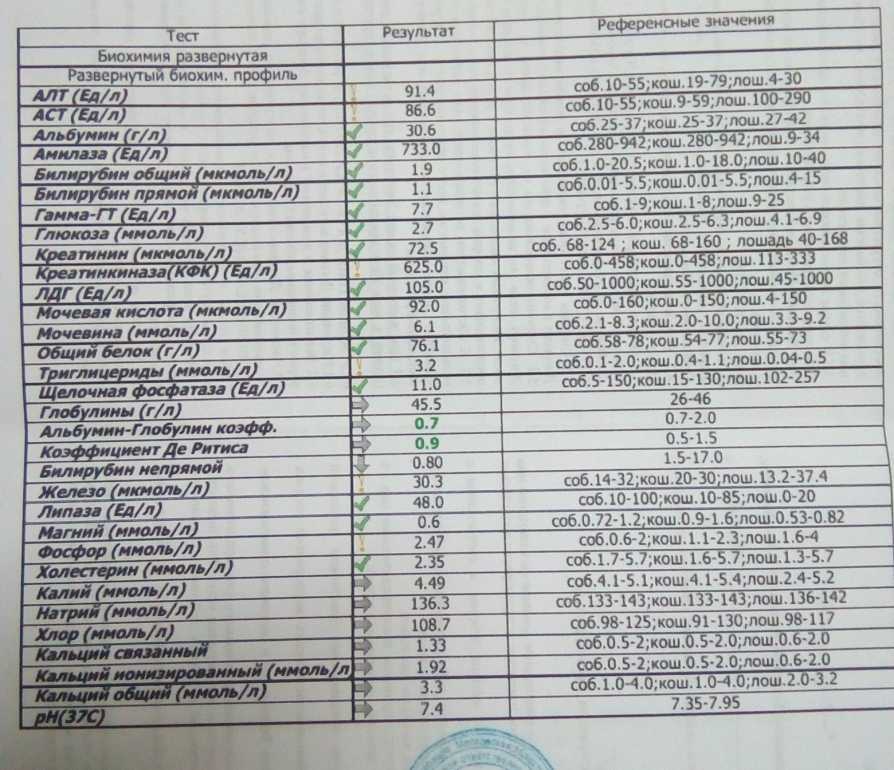 Тест Результат Референсные значения
Биохимия развернутая
Развернутый биохим. профиль
АЛТ (Ед/л) 91.4 соб.10-55;кош.19-79;лош.4-30
АСТ (Ед/л) 86.6 соб.10-55;кош.9-59;лош.100-290
Альбумин (г/л) 30.6 соб.25-37;кош.25-37;лош.27-42
Амилаза (Ед/л) 733.0 соб.280-942;кош.280-942;лош.9-34
Билирубин общий (мкмоль/л) 1.9 соб.1.0-20.5;кош.1.0-18.0;лош.10-40
Билирубин прямой (мкмоль/л) 1.1 соб.0.01-5.5;кош.0.01-5.5;лош.4-15
Гамма-ГТ (Ед/л) 7.7 соб.1-9;кош.1-8;лош.9-25
Глюкоза (ммоль/л) 2.7 соб.2.5-6.0;кош.2.5-6.3;лош.4.1-6.9
Креатинин (мкмоль/л) 72.5 соб. 68-124 ; кош. 68-160 ; лошадь 40-168
Креатинкиназа(КФК) (Ед/л) 625.0 соб.0-458;кош.0-458;лош.113-333
ЛДГ (Ед/л) 105.0 соб.50-1000;кош.55-1000;лош.45-1000
Мочевая кислота (мкмоль/л) 92.0 соб.0-160;кош.0-150;лош.4-150
Мочевина (ммоль/л) 6.1 соб.2.1-8.3;кош.2.0-10.0;лош.3.3-9.2
Общий белок (г/л) 76.1 соб.58-78;кош.54-77;лош.55-73
Триглицериды (ммоль/л) 3.2 соб.0.1-2.0;кош.0.4-1.1;лош.0.04-0.5
Щелочная фосфатаза (Ед/л) 11.0 соб.5-150;кош.15-130;лош.102-257
Глобулины (г/л) 45.5 26-46
Альбумин-Глобулин коэфф. 0.7 0.7-2.0
Коэффициент Де Ритиса 0.9 0.5-1.5
Билирубин непрямой 0.80 1.5-17.0
Железо (мкмоль/л) 30.3 соб.14-32;кош.20-30;лош.13.2-37.4
Липаза (Ед/л) 48.0 соб.10-100;кош.10-85;лош.0-20
Магний (ммоль/л) 0.6 соб.0.72-1.2;кош.0.9-1.6;лош.0.53-0.82
Фосфор (ммоль/л) 2.47 соб.0.6-2;кош.1.1-2.3;лош.1.6-4
Холестерин (ммоль/л) 2.35 соб.1.7-5.7;кош.1.6-5.7;лош.1.3-5.7
Калий (ммоль/л) 4.49 соб.4.1-5.1;кош.4.1-5.4;лош.2.4-5.2
Натрий (ммоль/л) 136.3 соб.133-143;кош.133-143;лош.136-142
Хлор (ммоль/л) 108.7 соб.98-125;кош.91-130;лош.98-117
Кальций связанный 1.33 соб.0.5-2;кош.0.5-2.0;лош.0.6-2.0
Кальций ионизированный (ммоль/л 1.92 соб.0.5-2;кош.0.5-2.0;лош.0.6-2.0
Кальций общий (ммоль/л) 3.3 соб.1.0-4.0;кош.1.0-4.0;лош.2.0-3.2
pH(37C) 7.4 7.35-7.95